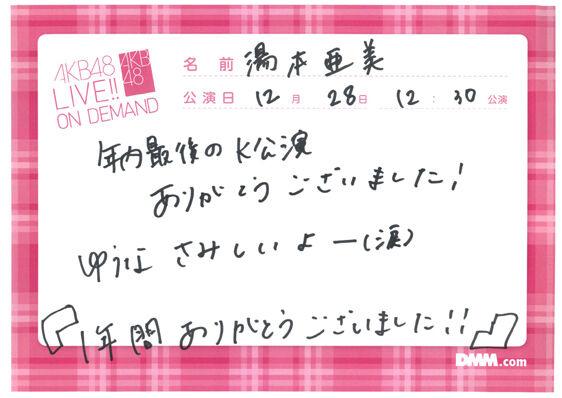 AKB48
LIVE!!
ON DEMAND
AKB
48
名前 湯本亜美
公演日 12月 28日 12:30公演
年内最後のK公演
ありがとうございました!
ゆうなぁ さみしいよー(涙)
『1年間 ありがとうございました!!』
DMM.com